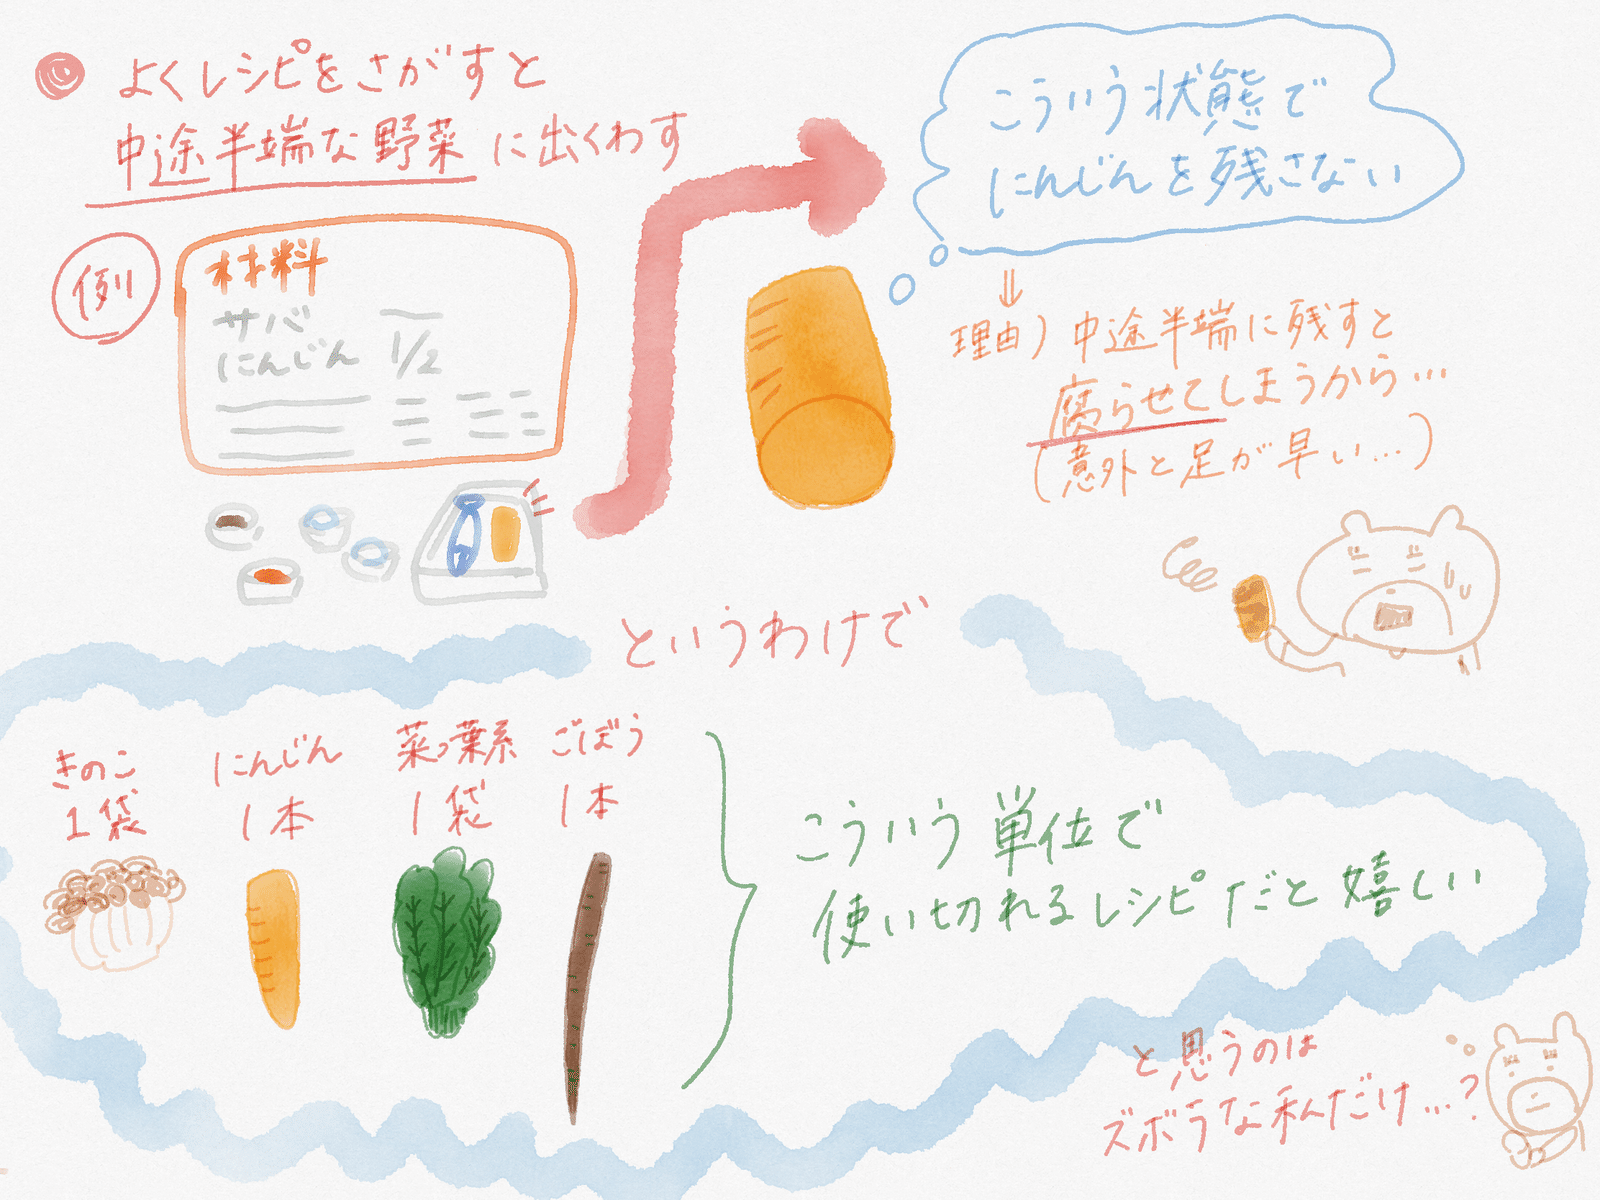 よくレシピをさがすと
中途半端な野菜に出くわす
例
材料
サバ
にんじん 1/2
こういう状態で
にんじんを残さない
⇓
理由）中途半端に残すと
腐らせてしまうから…
（意外と足が早い…）
というわけで
きのこ
1袋
にんじん
1本
菜っ葉系
1袋
ごぼう
1本
こういう単位で
使い切れるレシピだと嬉しい
と思うのは
ズボラな私だけ…?